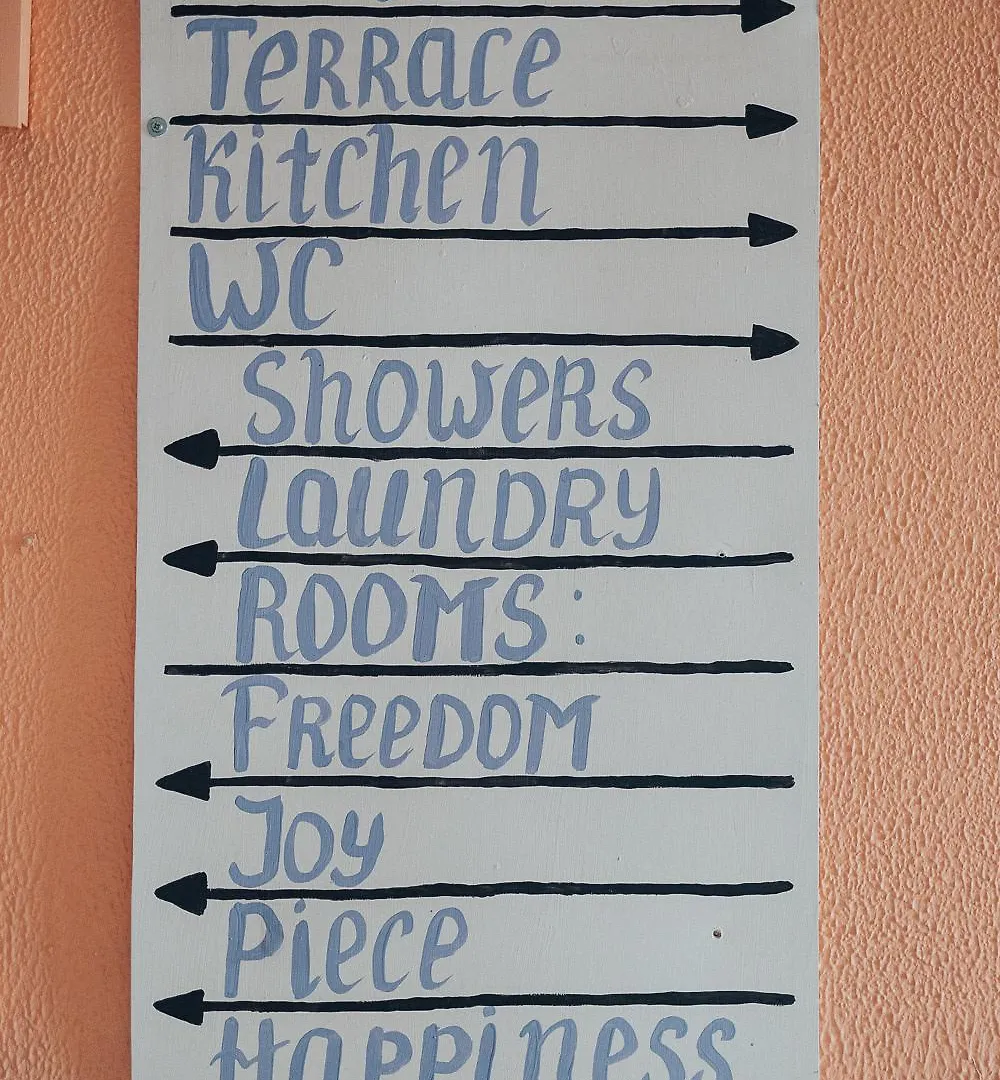 Terrace
Kitchen
WC
Showers
Laundry
Rooms:
Freedom
Joy
Piece
Happiness